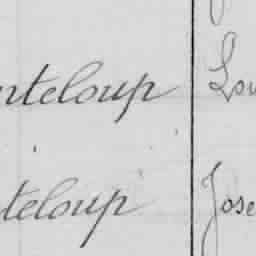 nteloup Lou
teloup Jose